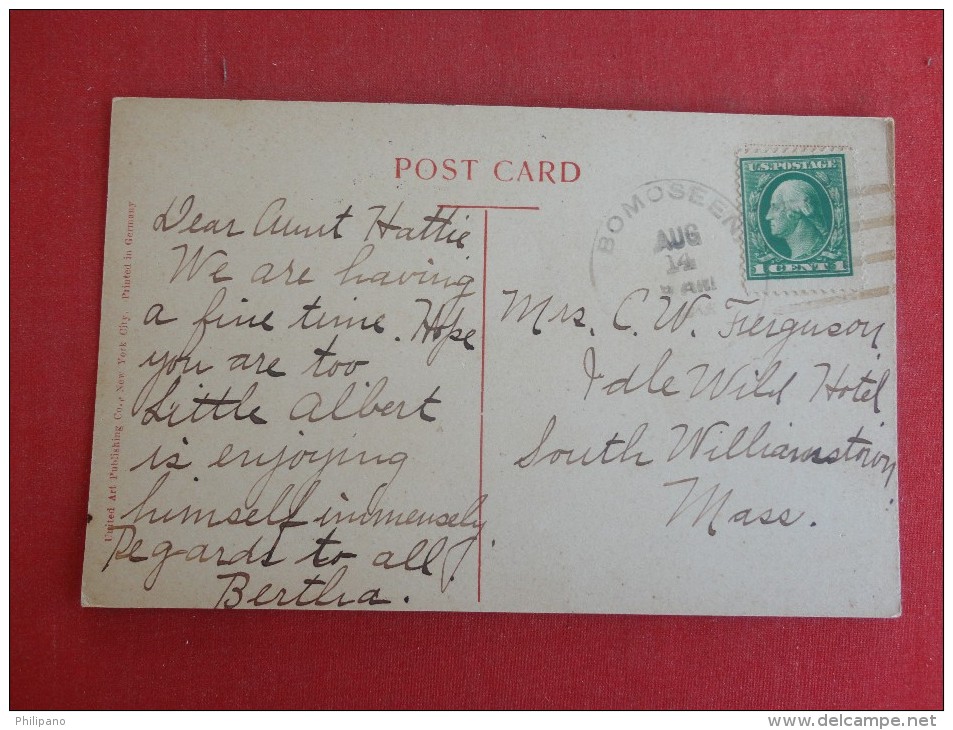 POST CARD
United Art Publishing Co., New York City. Printed in Germany
Dear Aunt Hattie
We are having
a fine time. Hope
you are too
Little Albert
is enjoying
himself immensely.
Regards to all.
Bertha.
BOMOSEEN
AUG
14
U.S. POSTAGE
1 CENT 1
Mrs. C. W. Ferguson,
Idle Wild Hotel
South Williamstown,
Mass.
Philipano
www.delcampe.net